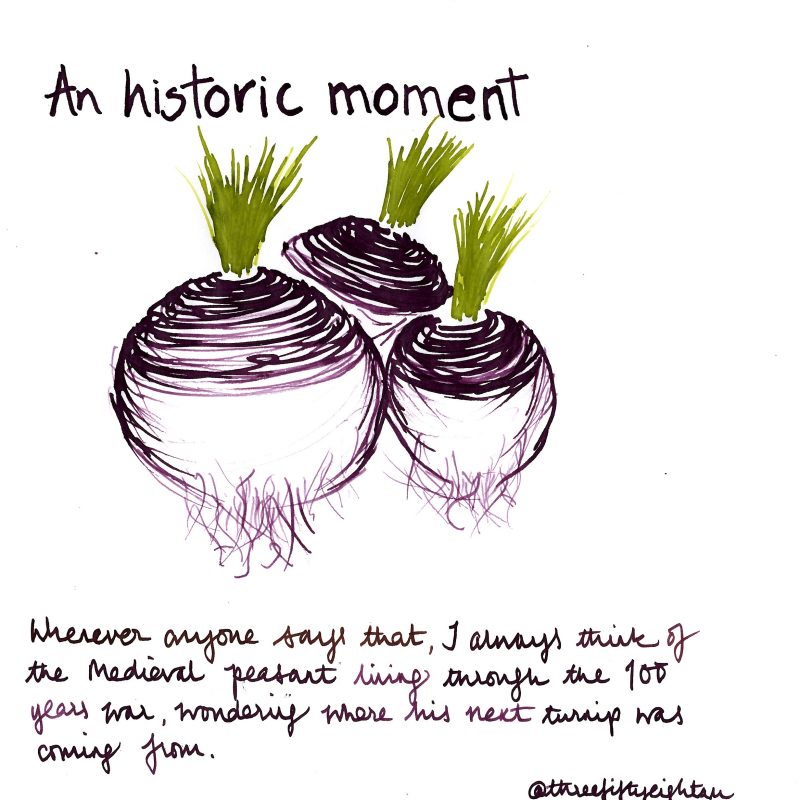 An historic moment
Wherever anyone says that, I always think of
the Medieval peasant living through the 100
years war, wondering where his next turnip was
coming from.
@threefiftyeightam